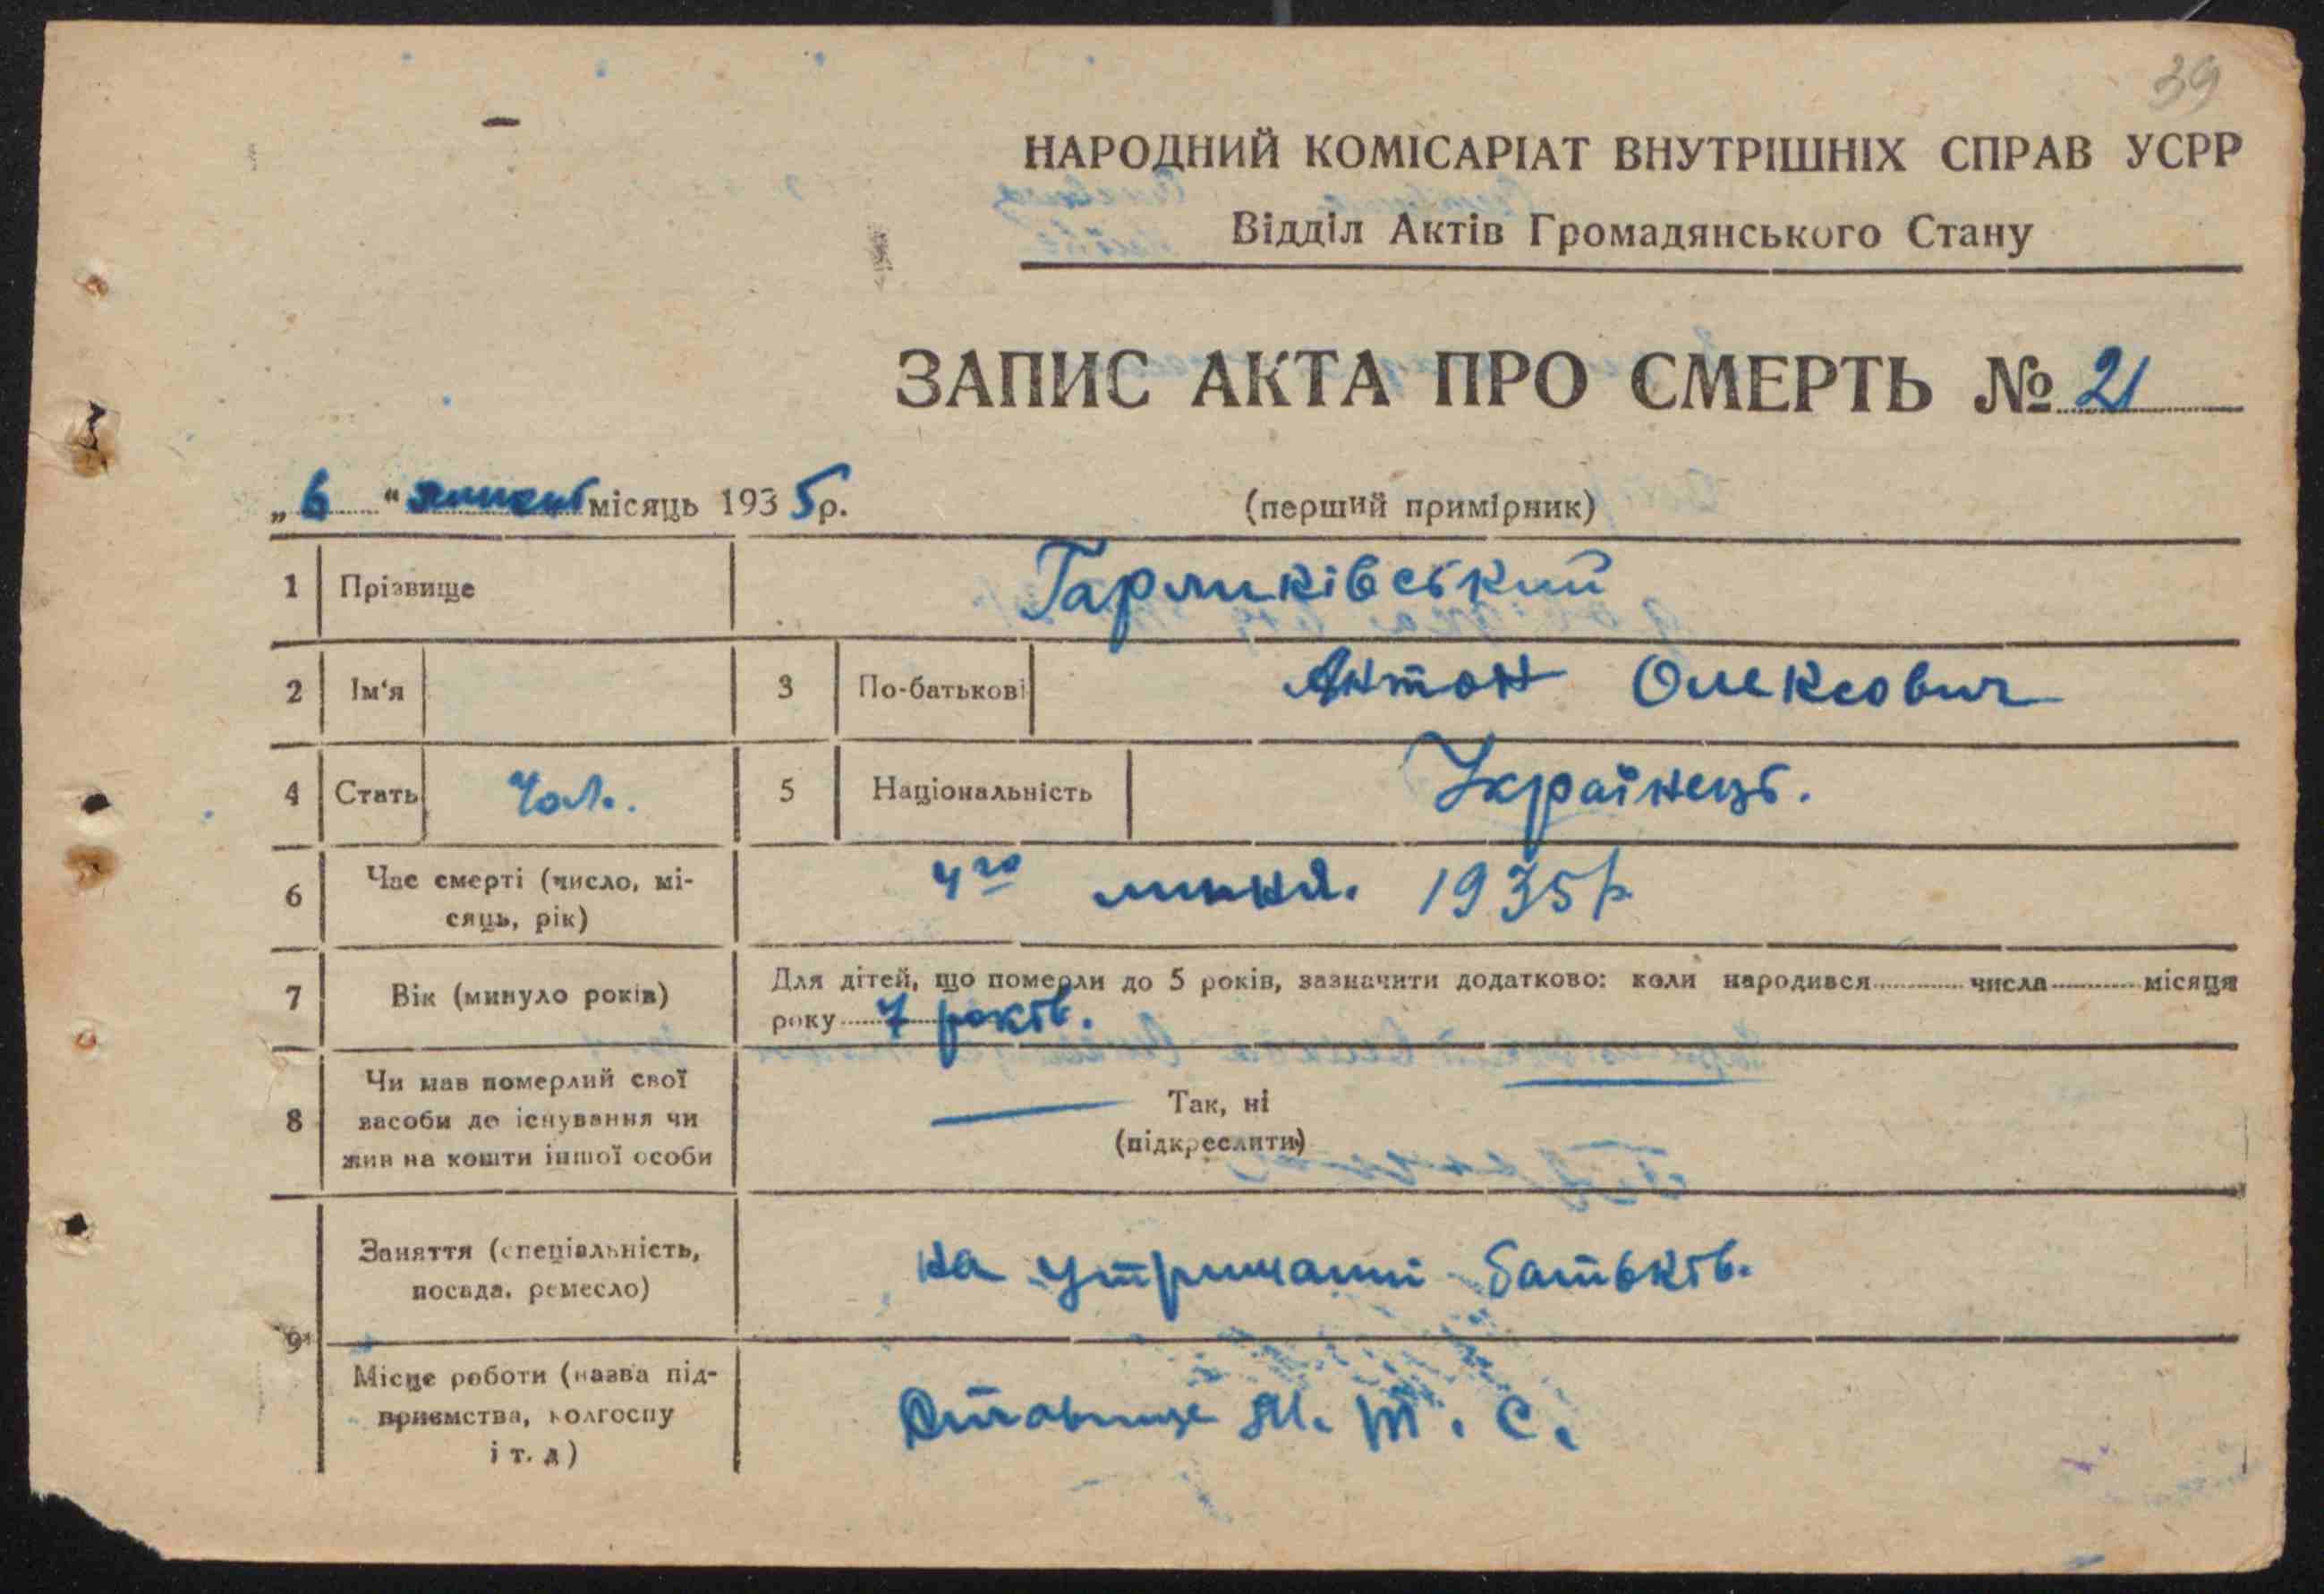 39
НАРОДНИЙ КОМІСАРІАТ ВНУТРІШНІХ СПРАВ УСРР
Відділ Актів Громадянського Стану
ЗАПИС АКТА ПРО СМЕРТЬ № 21
„6“ місяць 1935р.
(перший примірник)
1 Прізвище Гарликівський
2 Ім'я 3 По-батькові Антон Олексович
4 Стать Чол. 5 Національність Українець.
6 Час смерті (число, мі-
сяць, рік) 4го липня. 1935р
7 Вік (минуло років) Для дітей, що померли до 5 років, зазначити додатково: коли народився числа місяця
року 7 років.
8 Чи мав померлий свої
засоби до існування чи
жив на кошти іншої особи
Так, ні
(підкреслити)
9 Заняття (спеціальність,
посада, ремесло) на утриманні батьків.
Місце роботи (назва під-
приємства, колгоспу
і т. д) М. Т. С.